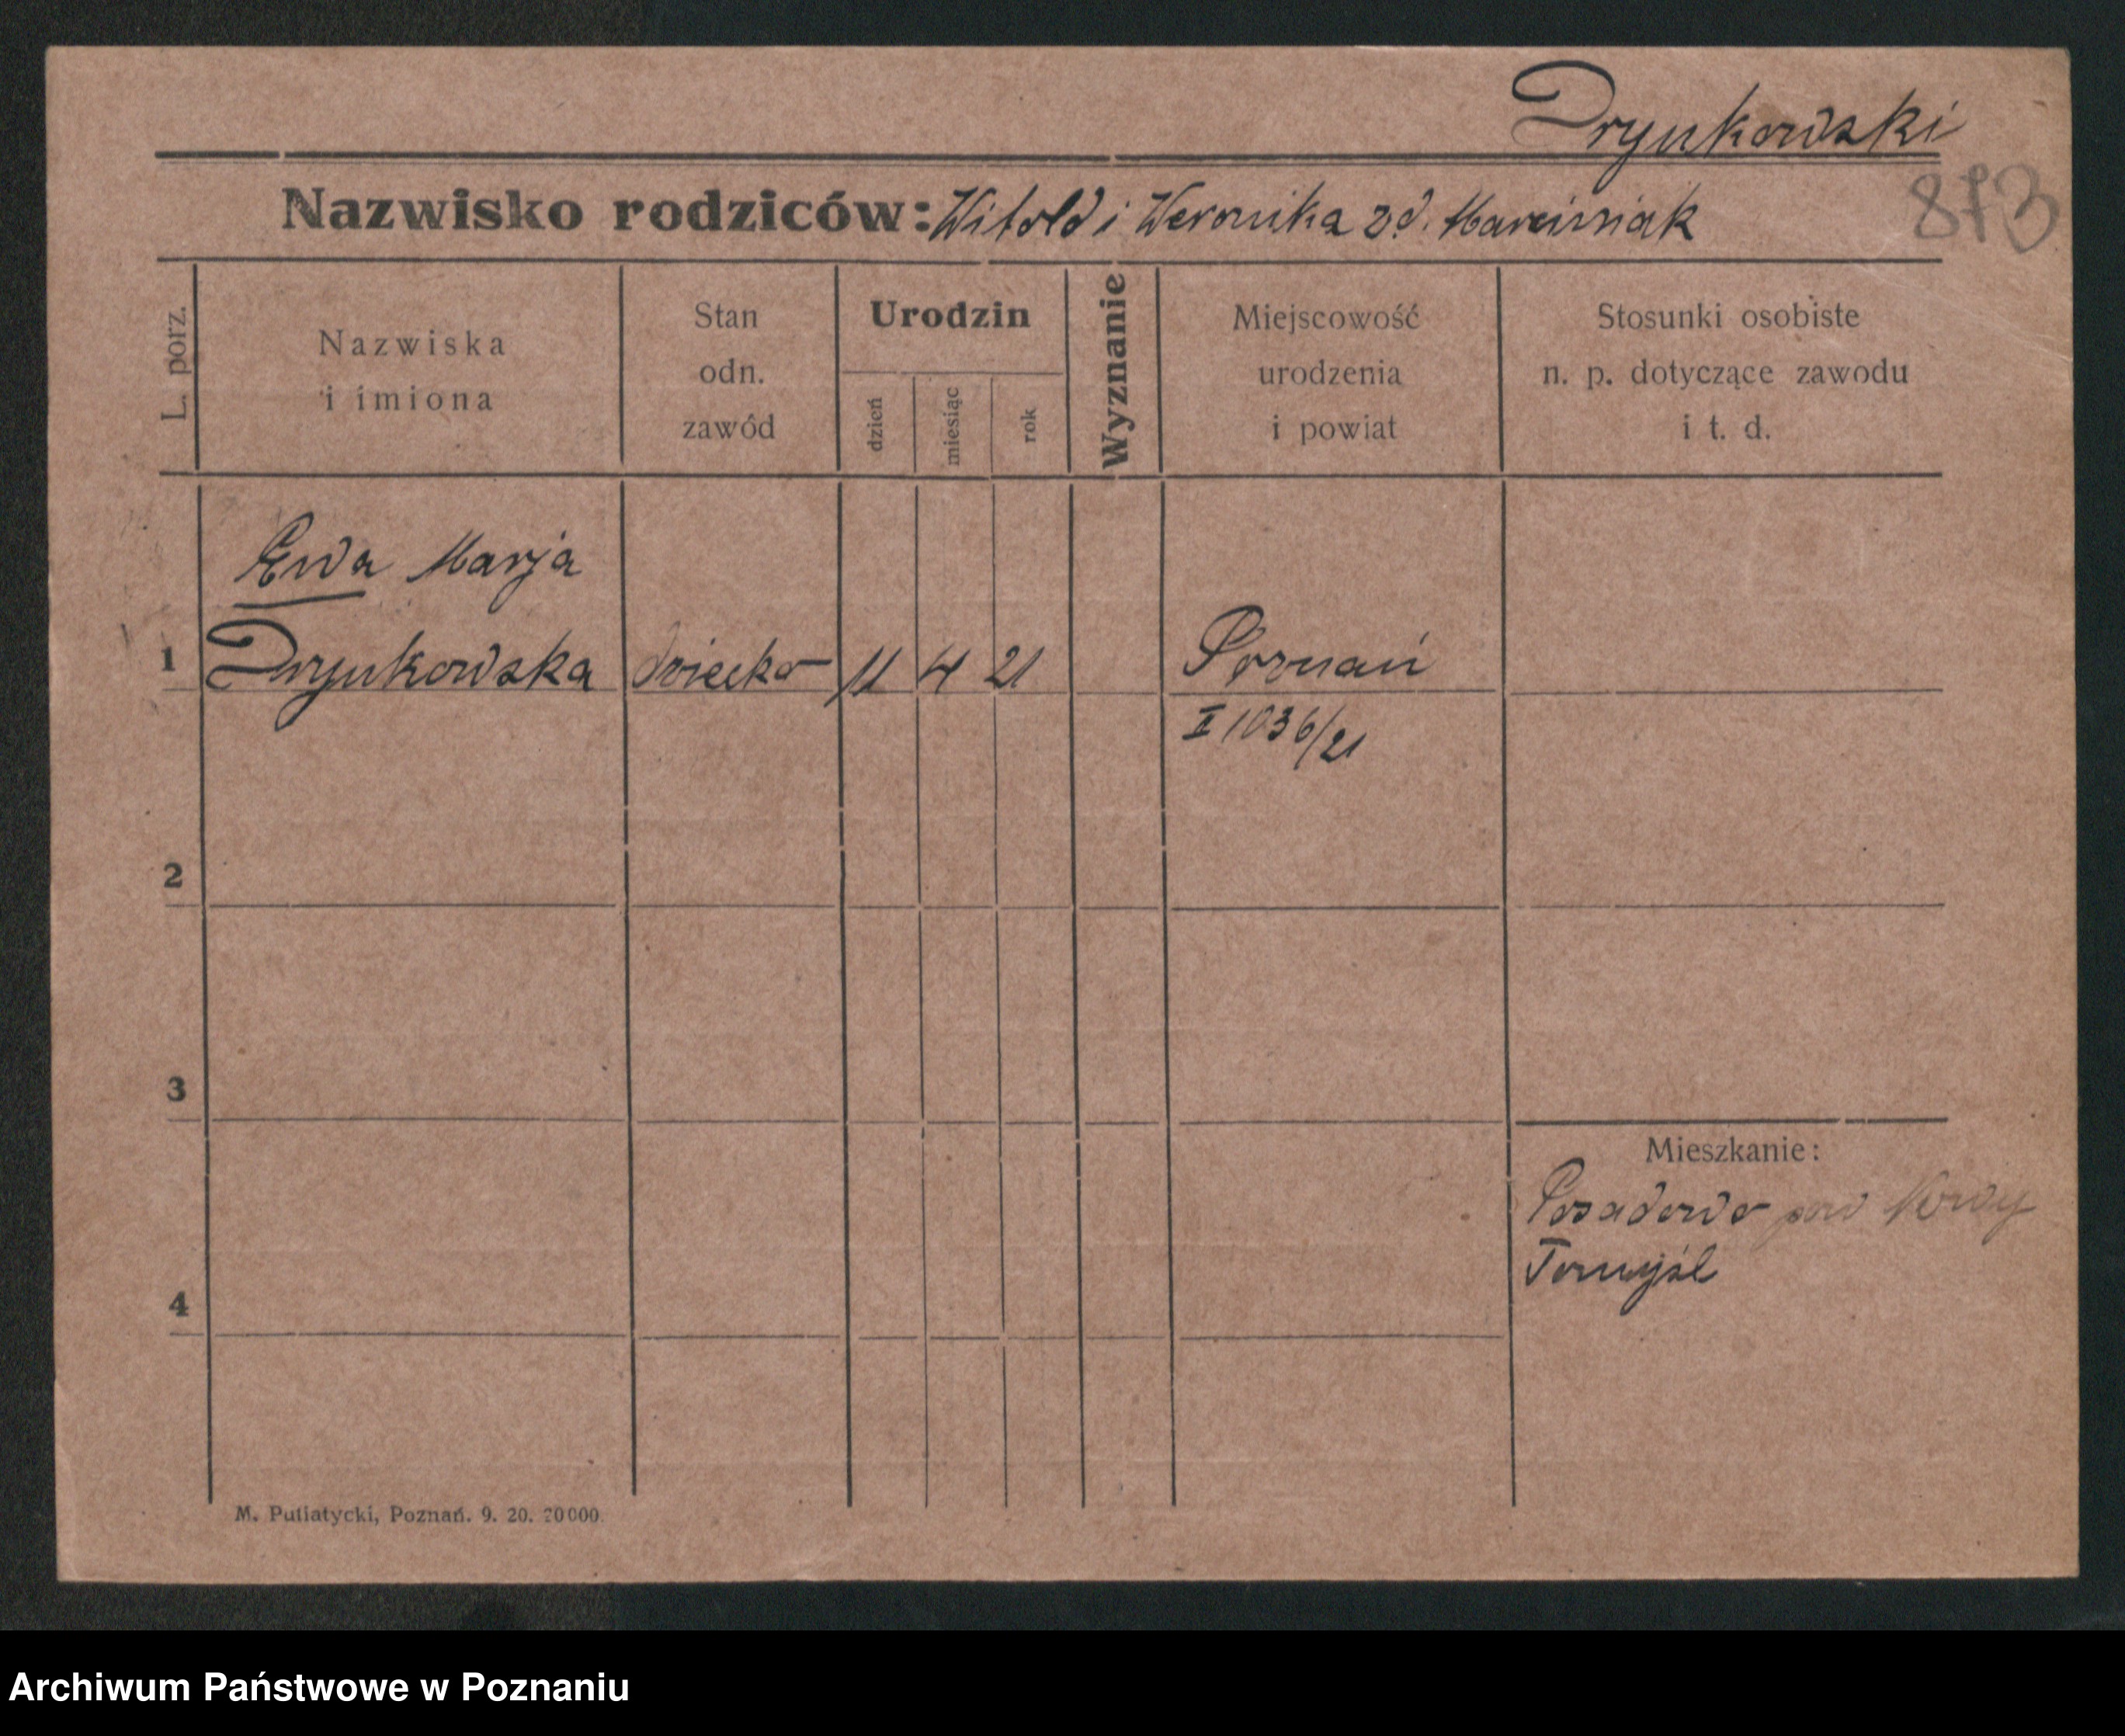 Drynkowski
873
Nazwisko rodziców: Witold i Weronika zd. Marciniak
L. porz.
Nazwiska
i imiona
Stan
odn.
zawód
Urodzin
dzień
miesiąc
rok
Wyznanie
Miejscowość
urodzenia
i powiat
Stosunki osobiste
n. p. dotyczące zawodu
i t. d.
Ewa Marja
1 Drynkowska dziecko 11 4 21 Poznań
I 1036/21
2
3
Mieszkanie:
Posadowo pow Nowy
Tomyśl
4
M. Putiatycki, Poznań. 9. 20. 20000.
Archiwum Państwowe w Poznaniu